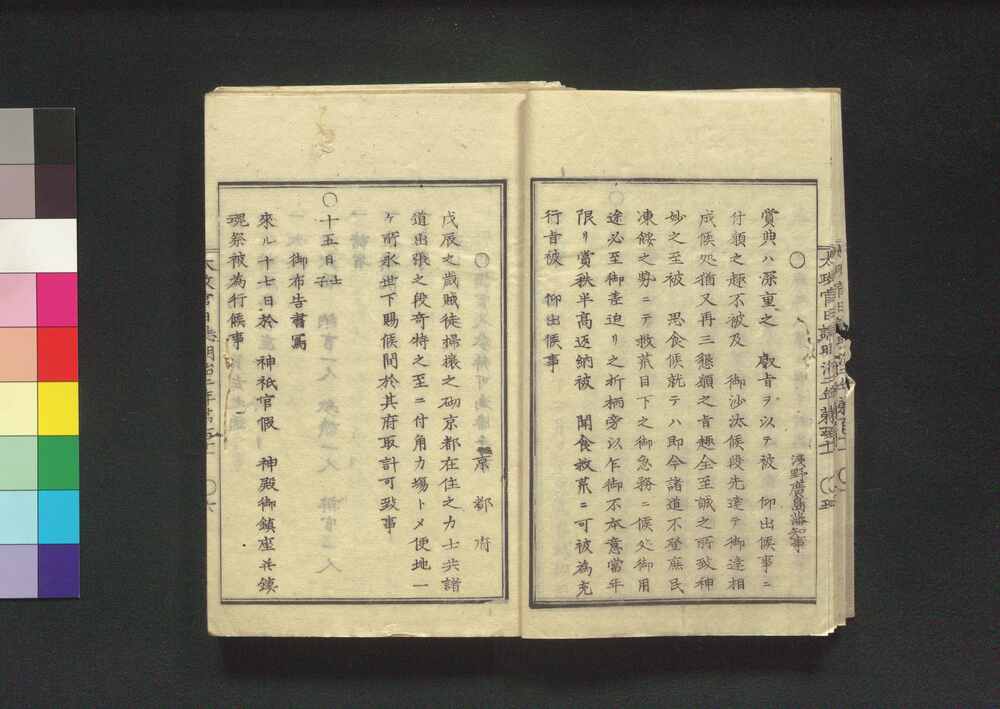 太政官日誌明治二年第百十一
〇
淺野廣島藩知事
賞典ハ深重之 叡旨ヲ以テ被 仰出候事ニ
付願之趣不被及 御沙汰候段先達テ御達相
成候処猶又再三懇願之旨趣全至誠之所致神
妙之至被 思食候就テハ即今諸道不登庶民
凍餒之勢ニテ救荒目下之御急務ニ候処御用
途必至御壅迫リ之折柄旁以乍御不本意當年
限リ賞秩半高返納被 聞食救荒ニ可被為充
行旨被 仰出候事
〇 京都府
戊辰之歳賊徒掃攘之砌京都在住之力士共諸
道出張之段奇特之至ニ付角力塲トメ便地一
ケ所永世下賜候間於其府取計可致事
〇十五日壬子
御布告書寫
來ル十七日於 神祇官假 神殿御鎮座并鎮
魂祭被為行候事
太政官日誌明治二年第百十一 〇六